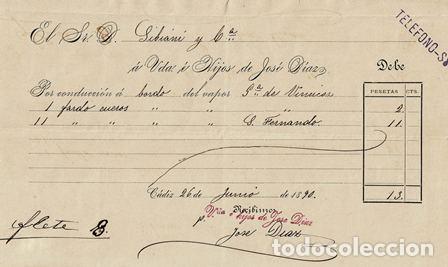 El Sr. D. Libiani y Cª
TELEFONO-S
á Vda. é Hijos de José Díaz
Debe
Por conducción á bordo del vapor Gª de Vinuesa
PESETAS CTS.
1 fardo cueros " " " 2
11 " " " " S. Fernando. 11
13
Cádiz 26 de Junio de 1890.
Recibimos
p. Vda. é hijos de José Díaz
José Díaz
flete B.
todocoleccion.net